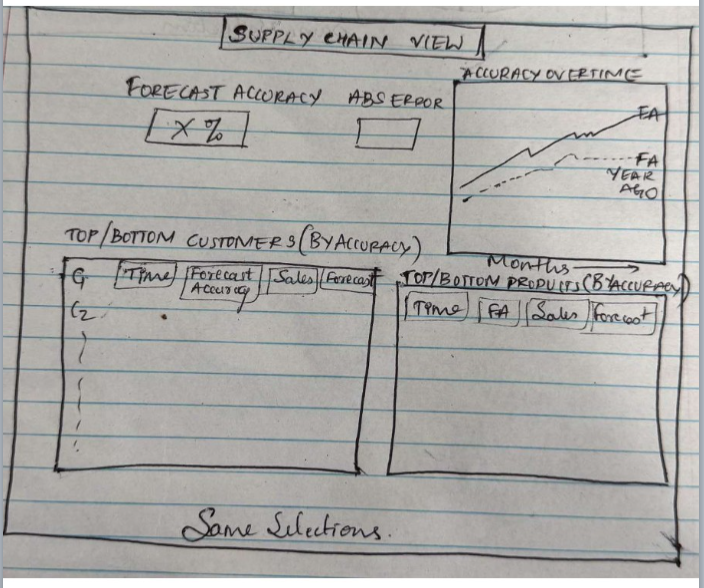 SUPPLY CHAIN VIEW
ACCURACY OVERTIME
FORECAST ACCURACY ABS ERROR
X %
FA
FA
YEAR
AGO
Months
TOP/BOTTOM CUSTOMERS (BY ACCURACY)
C1 Time Forecast Accuracy Sales Forecast
C2
TOP/BOTTOM PRODUCTS (BY ACCURACY)
Time FA Sales Forecast
Same Selections.